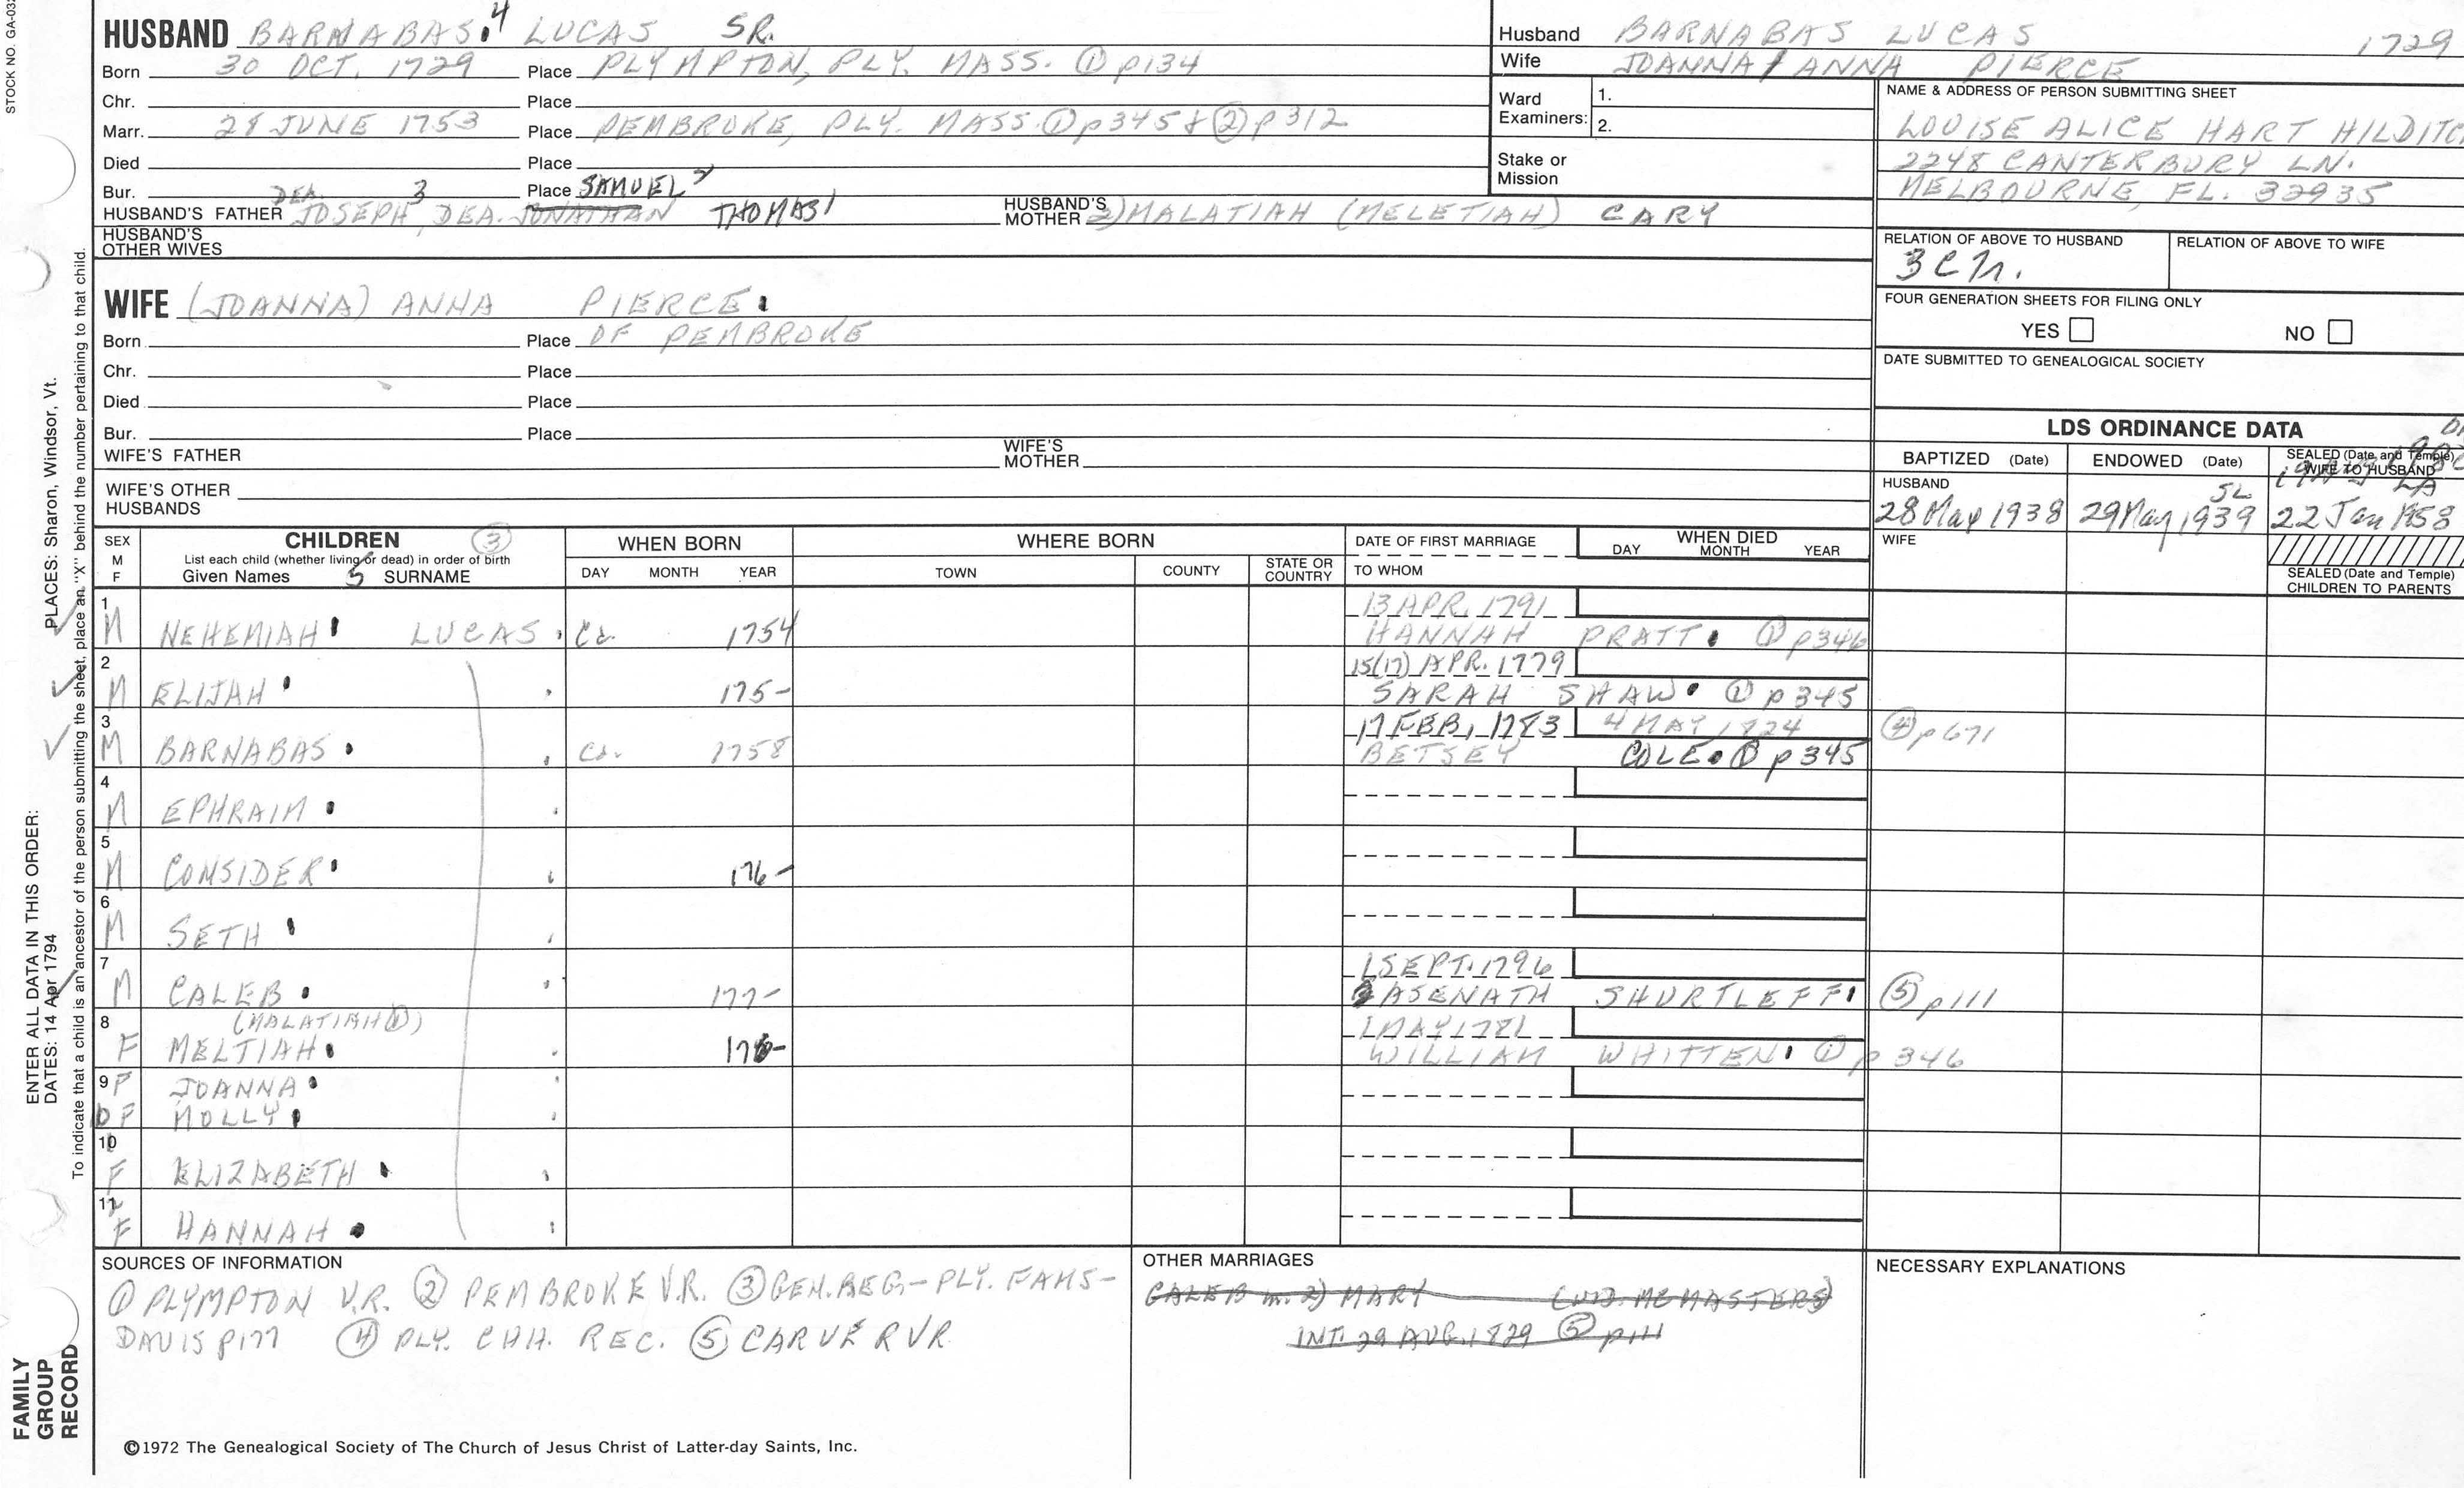 STOCK NO. GA-032
HUSBAND BARNABAS 4 LUCAS SR.
Born 30 OCT. 1729 Place PLYMPTON, PLY. MASS. ① p134
Chr. Place
Marr. 28 JUNE 1753 Place PEMBROKE, PLY. MASS. ① p345 & ② p312
Died Place
Bur. Place
HUSBAND'S FATHER DEA. JOSEPH 3, DEA. JONATHAN SAMUEL 2 THOMAS 1 HUSBAND'S MOTHER 2) MALATIAH (MELETIAH) CARY
HUSBAND'S OTHER WIVES
WIFE (JOANNA) ANNA PIERCE
Born Place OF PEMBROKE
Chr. Place
Died Place
Bur. Place
WIFE'S FATHER WIFE'S MOTHER
WIFE'S OTHER HUSBANDS
Husband BARNABAS LUCAS 1729
Wife JOANNA / ANNA PIERCE
Ward Examiners: 1.
2.
Stake or Mission
NAME & ADDRESS OF PERSON SUBMITTING SHEET
LOUISE ALICE HART HILDITC
2248 CANTERBURY LN.
MELBOURNE, FL. 32935
RELATION OF ABOVE TO HUSBAND RELATION OF ABOVE TO WIFE
FOUR GENERATION SHEETS FOR FILING ONLY
YES NO
DATE SUBMITTED TO GENEALOGICAL SOCIETY
LDS ORDINANCE DATA
BAPTIZED (Date) ENDOWED (Date) SEALED (Date and Temple) WIFE TO HUSBAND
HUSBAND SL LA
28 May 1938 29 May 1939 22 Jan 1958
WIFE
SEALED (Date and Temple) CHILDREN TO PARENTS
SEX M F CHILDREN ③ WHEN BORN WHERE BORN DATE OF FIRST MARRIAGE WHEN DIED
List each child (whether living or dead) in order of birth DAY MONTH YEAR
Given Names SURNAME DAY MONTH YEAR TOWN COUNTY STATE OR COUNTRY TO WHOM
1 13 APR. 1791
M NEHEMIAH LUCAS Ca. 1754 HANNAH PRATT ① p346
2 15(17) APR. 1779
M ELIJAH 175- SARAH SHAW ① p345
3 17 FEB, 1783 4 MAY 1824 ④ p671
M BARNABAS Ca. 1758 BETSEY COLE ① p345
4
M EPHRAIM
5
M CONSIDER 176-
6
M SETH
7 1 SEPT. 1796
M CALEB 177- ASENATH SHURTLEFF ⑤ p111
8 (MALATIAH ①) 1 MAY 1781
F MELTIAH WILLIAM WHITTEN ① p 346
9 F JOANNA
10 F MOLLY
10
F ELIZABETH
11
F HANNAH
SOURCES OF INFORMATION
① PLYMPTON V.R. ② PEMBROKE V.R. ③ GEN. REG.- PLY. FAMS-
DAVIS p177 ④ PLY. CHH. REC. ⑤ CARVER VR.
OTHER MARRIAGES
CALEB m. 2) MARY (WID. MCMASTERS)
INT. 29 AUG. 1829 ⑤ p111
NECESSARY EXPLANATIONS
©1972 The Genealogical Society of The Church of Jesus Christ of Latter-day Saints, Inc.
FAMILY GROUP RECORD
ENTER ALL DATA IN THIS ORDER:
DATES: 14 Apr 1794 PLACES: Sharon, Windsor, Vt.
To indicate that a child is an ancestor of the person submitting the sheet, place an "X" behind the number pertaining to that child.